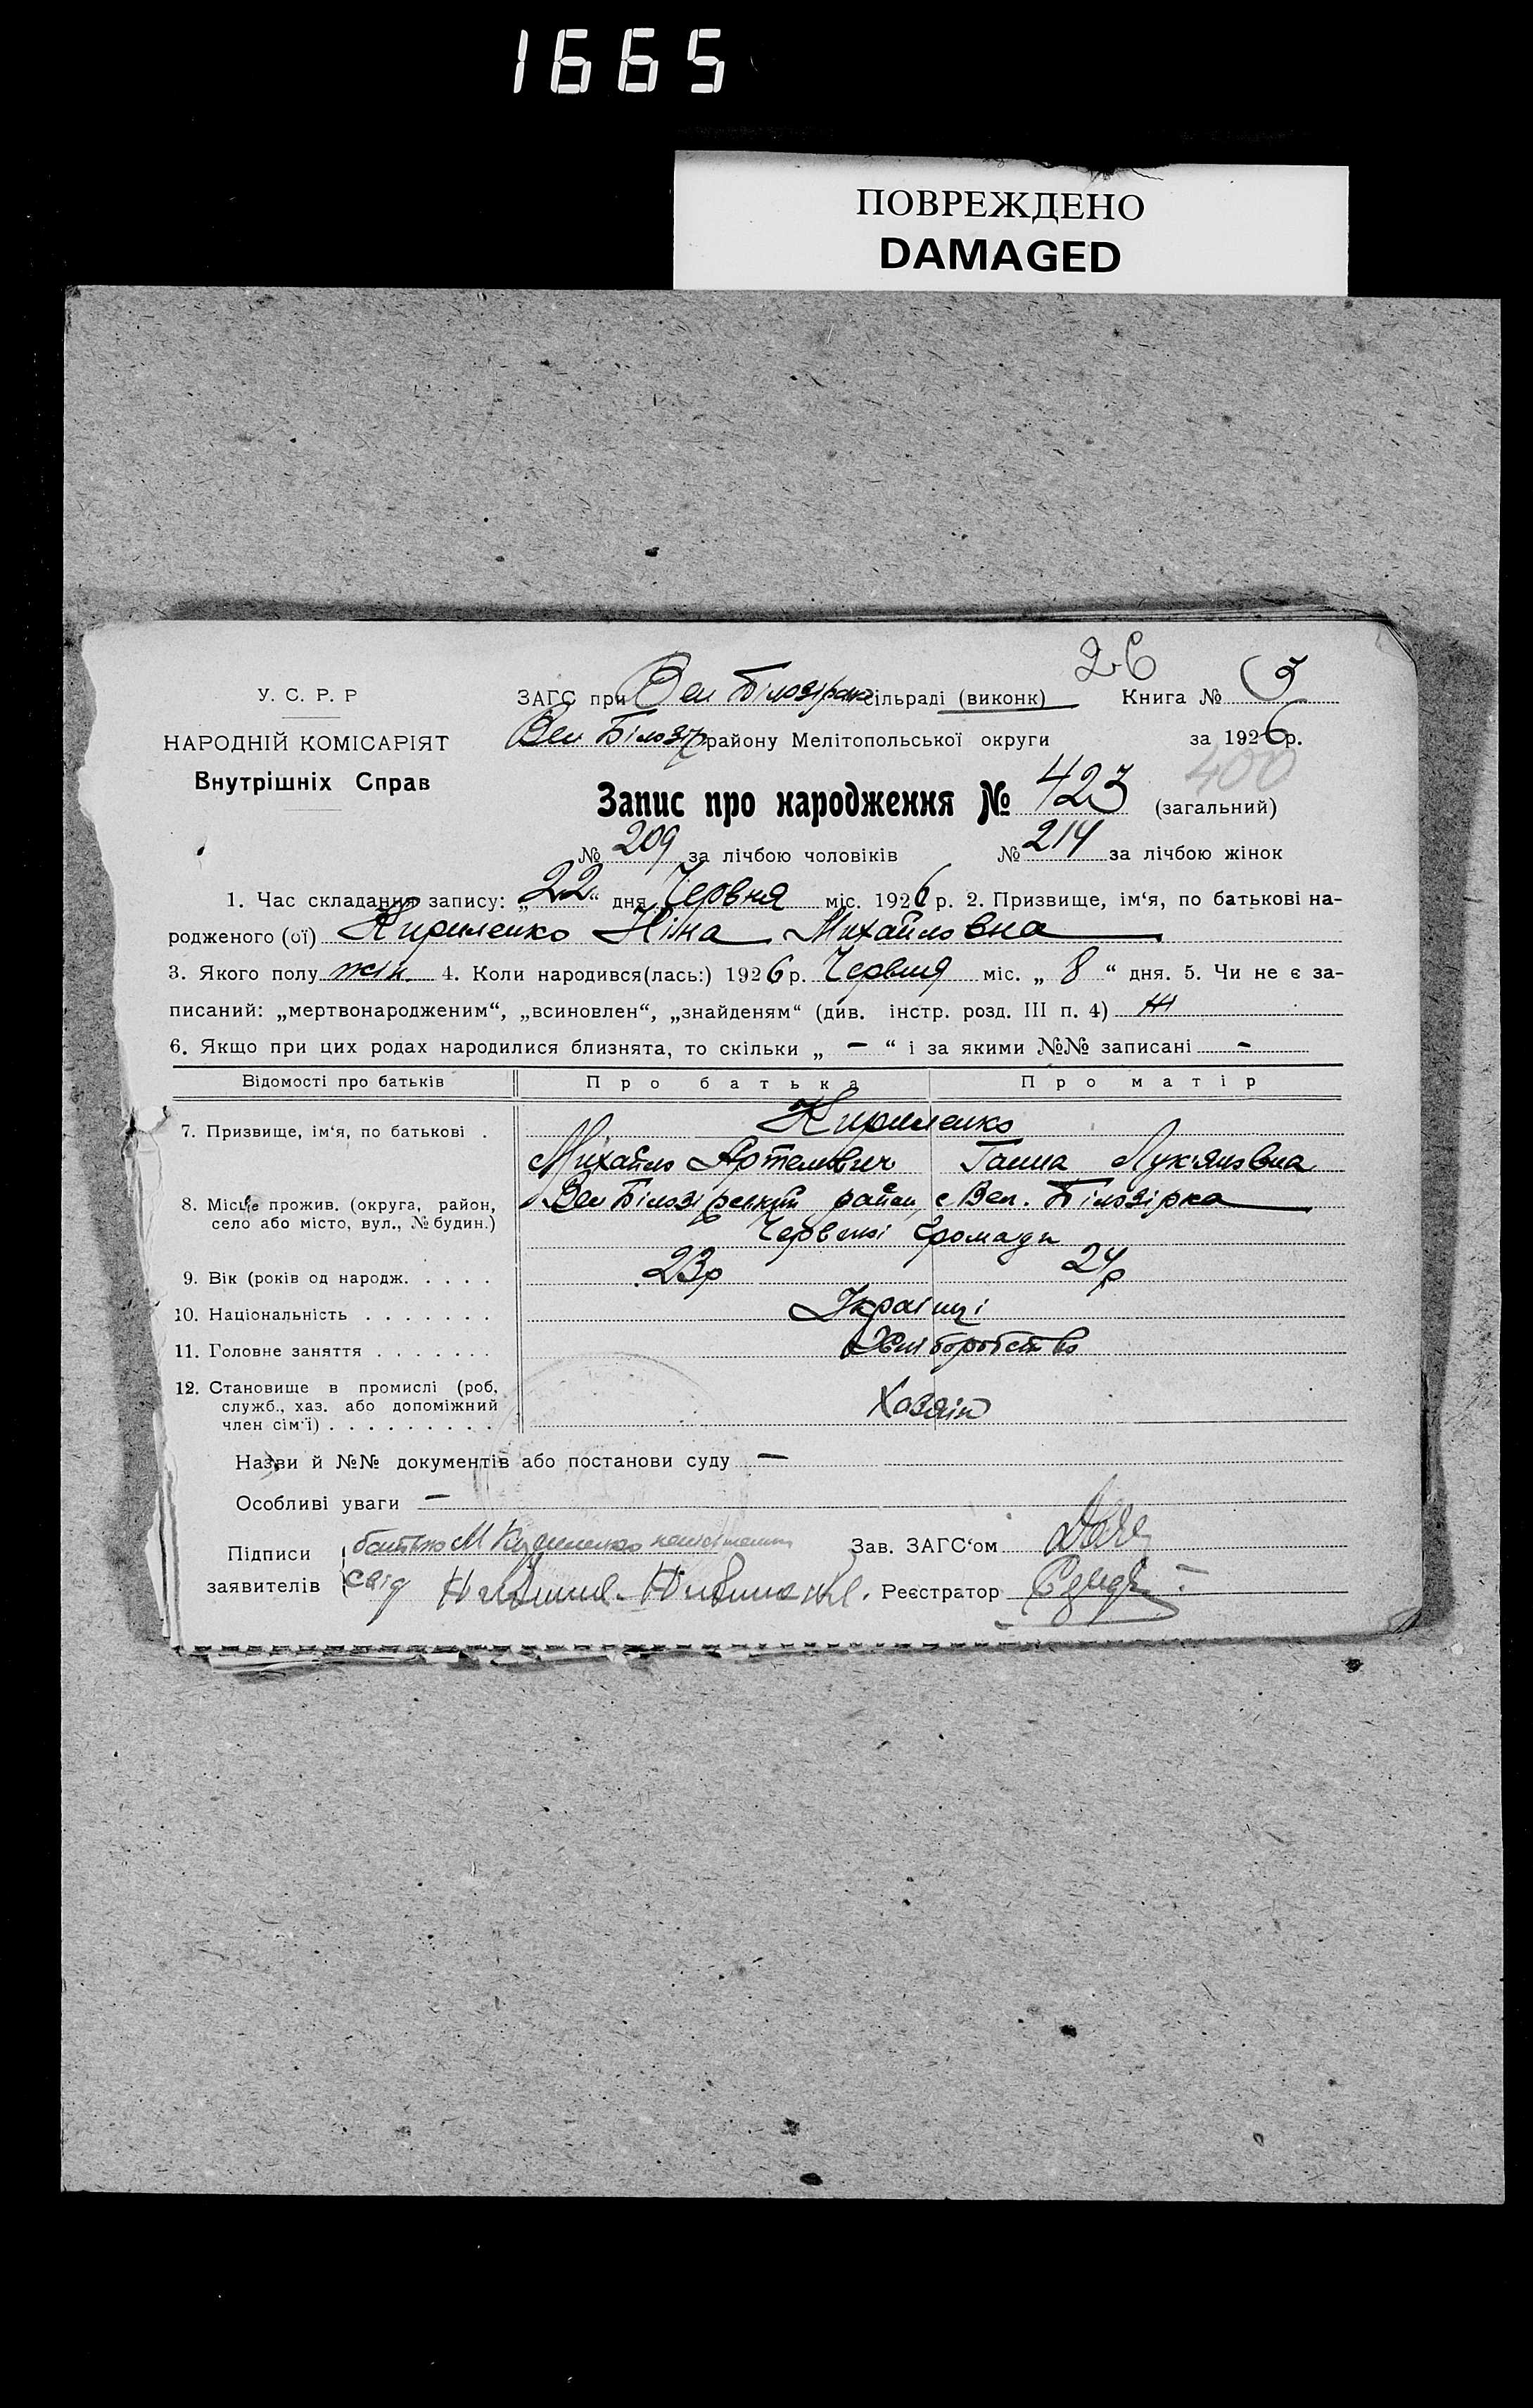 1665
ПОВРЕЖДЕНО
DAMAGED
26
У. С. Р. Р ЗАГС при Вел Білозірск сільраді (виконк) Книга № 3
НАРОДНІЙ КОМІСАРІЯТ Вел Білозір району Мелітопольської округи за 1926 р.
Внутрішніх Справ 400
Запис про народження № 423 (загальний)
№ 209 за лічбою чоловіків № 214 за лічбою жінок
1. Час складання запису: „22“ дня Червня міс. 1926 р. 2. Призвище, ім‘я, по батькові на-
родженого (ої) Кириленко Ніна Михайловна
3. Якого полу жін. 4. Коли народився(лась:) 1926 р. Червня міс. „ 8 “ дня. 5. Чи не є за-
писаний: „мертвонародженим“, „всиновлен“, „знайденям“ (див. інстр. розд. III п. 4)
6. Якщо при цих родах народилися близнята, то скільки „ — “ і за якими №№ записані —
Відомості про батьків Про батька Про матір
7. Призвище, ім‘я, по батькові . Кириленко
Михайло Артемович Ганна Лук‘яновна
8. Місце прожив. (округа, район, Вел Білозірський район, с Вел. Білозірка
село або місто, вул., № будин.) Червоної громади
9. Вік (років од народж. . . . . 23р 24р
10. Національність . . . . . . . Українці
11. Головне заняття . . . . . . . Хліборобство
12. Становище в промислі (роб,
служб., хаз. або допоміжний Хазяін
член сім‘ї) . . . . . . . . .
Назви й №№ документів або постанови суду —
Особливі уваги —
Підписи батько М Кириленко Зав. ЗАГС‘ом
заявителів свід Реєстратор